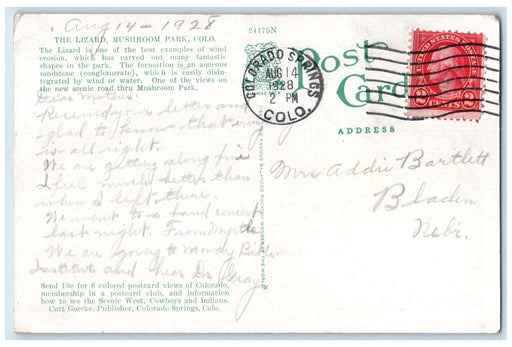 Aug 14 - 1928
THE LIZARD, MUSHROOM PARK, COLO.
The Lizard is one of the best examples of wind
erosion, which has carved out many fantastic
shapes in the park. The formation is an aqueous
sandstone (conglomerate), which is easily disin-
tegrated by wind or water. One of the views on
the new scenic road thru Mushroom Park.
Dear Mother:
Received your letter and
glad to know that
is all right.
We are getting along fine
I feel much better than
when I left there.
We went to a band concert
last night. From Myrtle
We are going to Moody
Institute and hear Dr. Gray
Send 10c for 6 colored postcard views of Colorado,
membership in a postcard club, and information
how to see the Scenic West, Cowboys and Indians.
Curt Goerke, Publisher, Colorado Springs, Colo.
24175N
Post
Card
COLORADO SPRINGS
AUG 14
1928
2 PM
COLO.
UNITED STATES
2 CENTS 2
ADDRESS
Mrs Addie Bartlett
Bladen
Nebr.